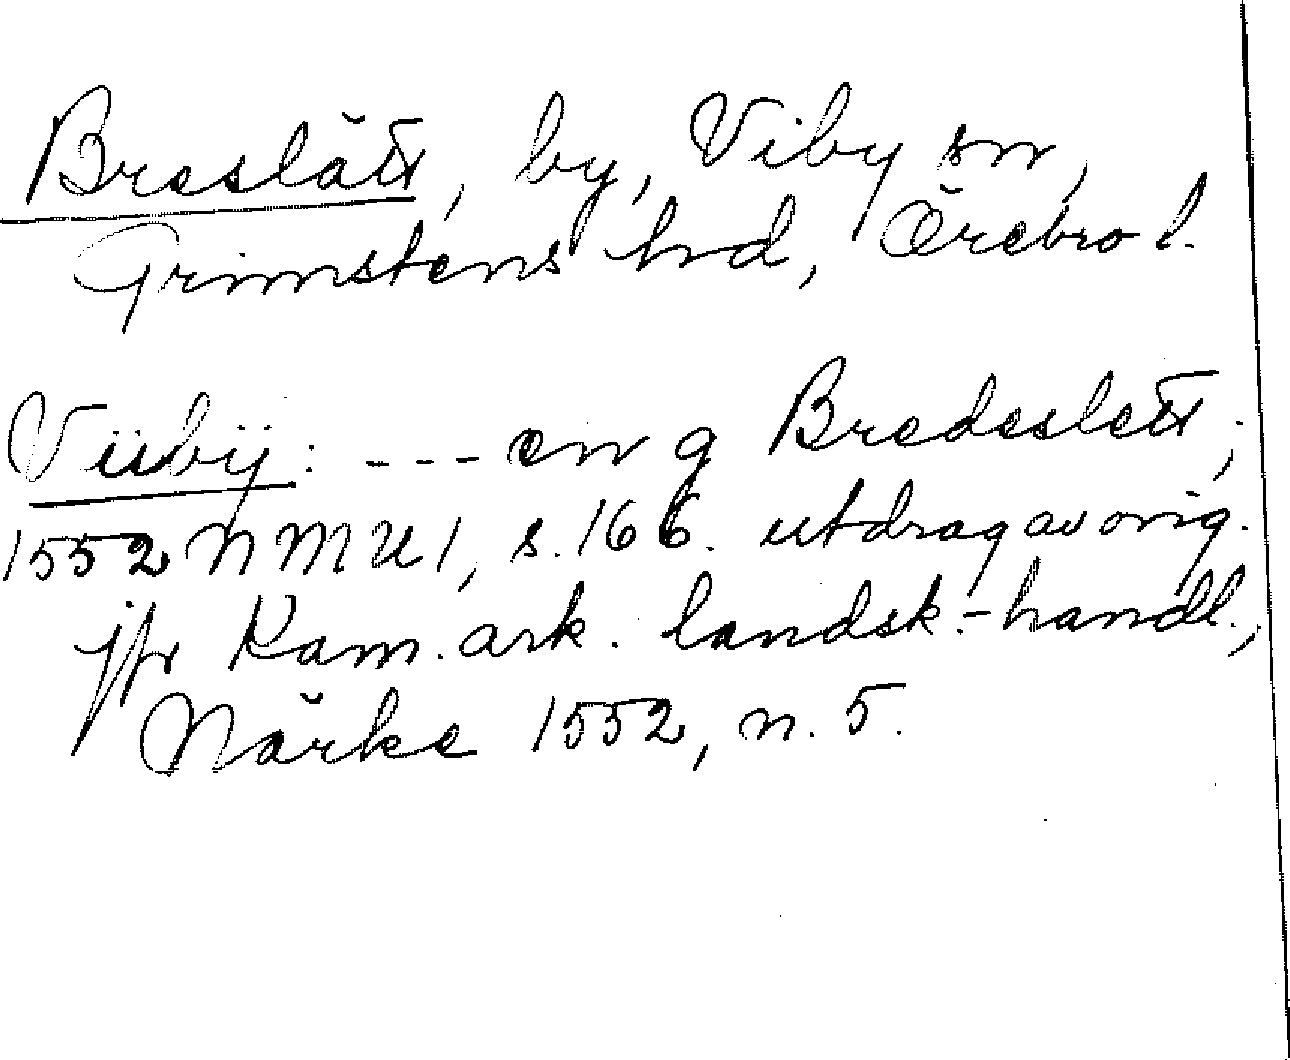 Breslätt, by, Viby sn,
Grimstens hd, Örebro l.
Viibÿ: --- en g Bredeslett;
1552 NMU 1, s. 166. utdrag av orig.
jfr Kam. ark. landsk.-handl.,
Närke 1552, n. 5.